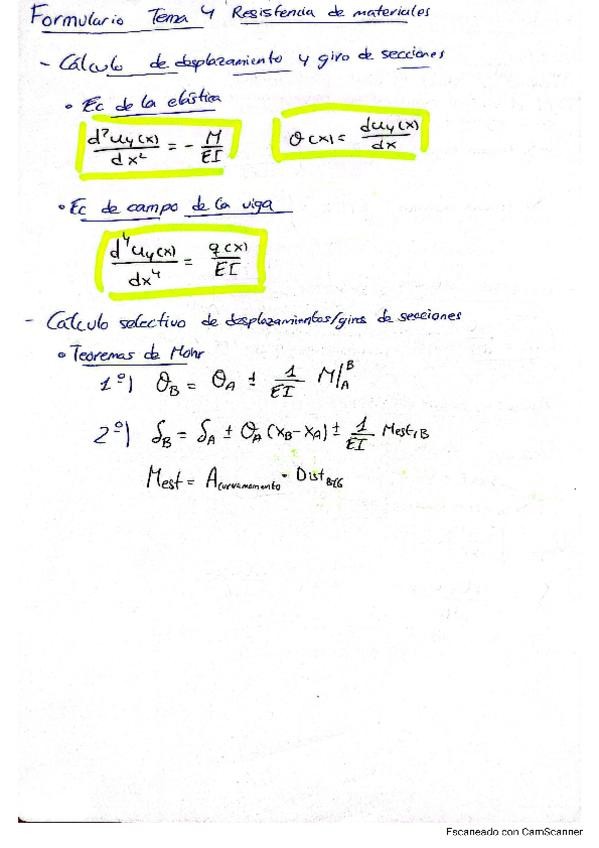 Formulario Tema 4 Resistencia de materiales
- Cálculo de desplazamiento y giro de secciones
• Ec de la elástica
d²uy(x)/dx² = - M/EI    θ(x) = duy(x)/dx
• Ec de campo de la viga
d⁴uy(x)/dx⁴ = q(x)/EI
- Calculo selectivo de desplazamientos/giros de secciones
• Teoremas de Mohr
1º) θB = θA ± 1/EI M/A^B
2º) δB = δA ± θA (xB-xA) ± 1/EI Mest,B
Mest = Acurvamomento · Dist
Escaneado con CamScanner